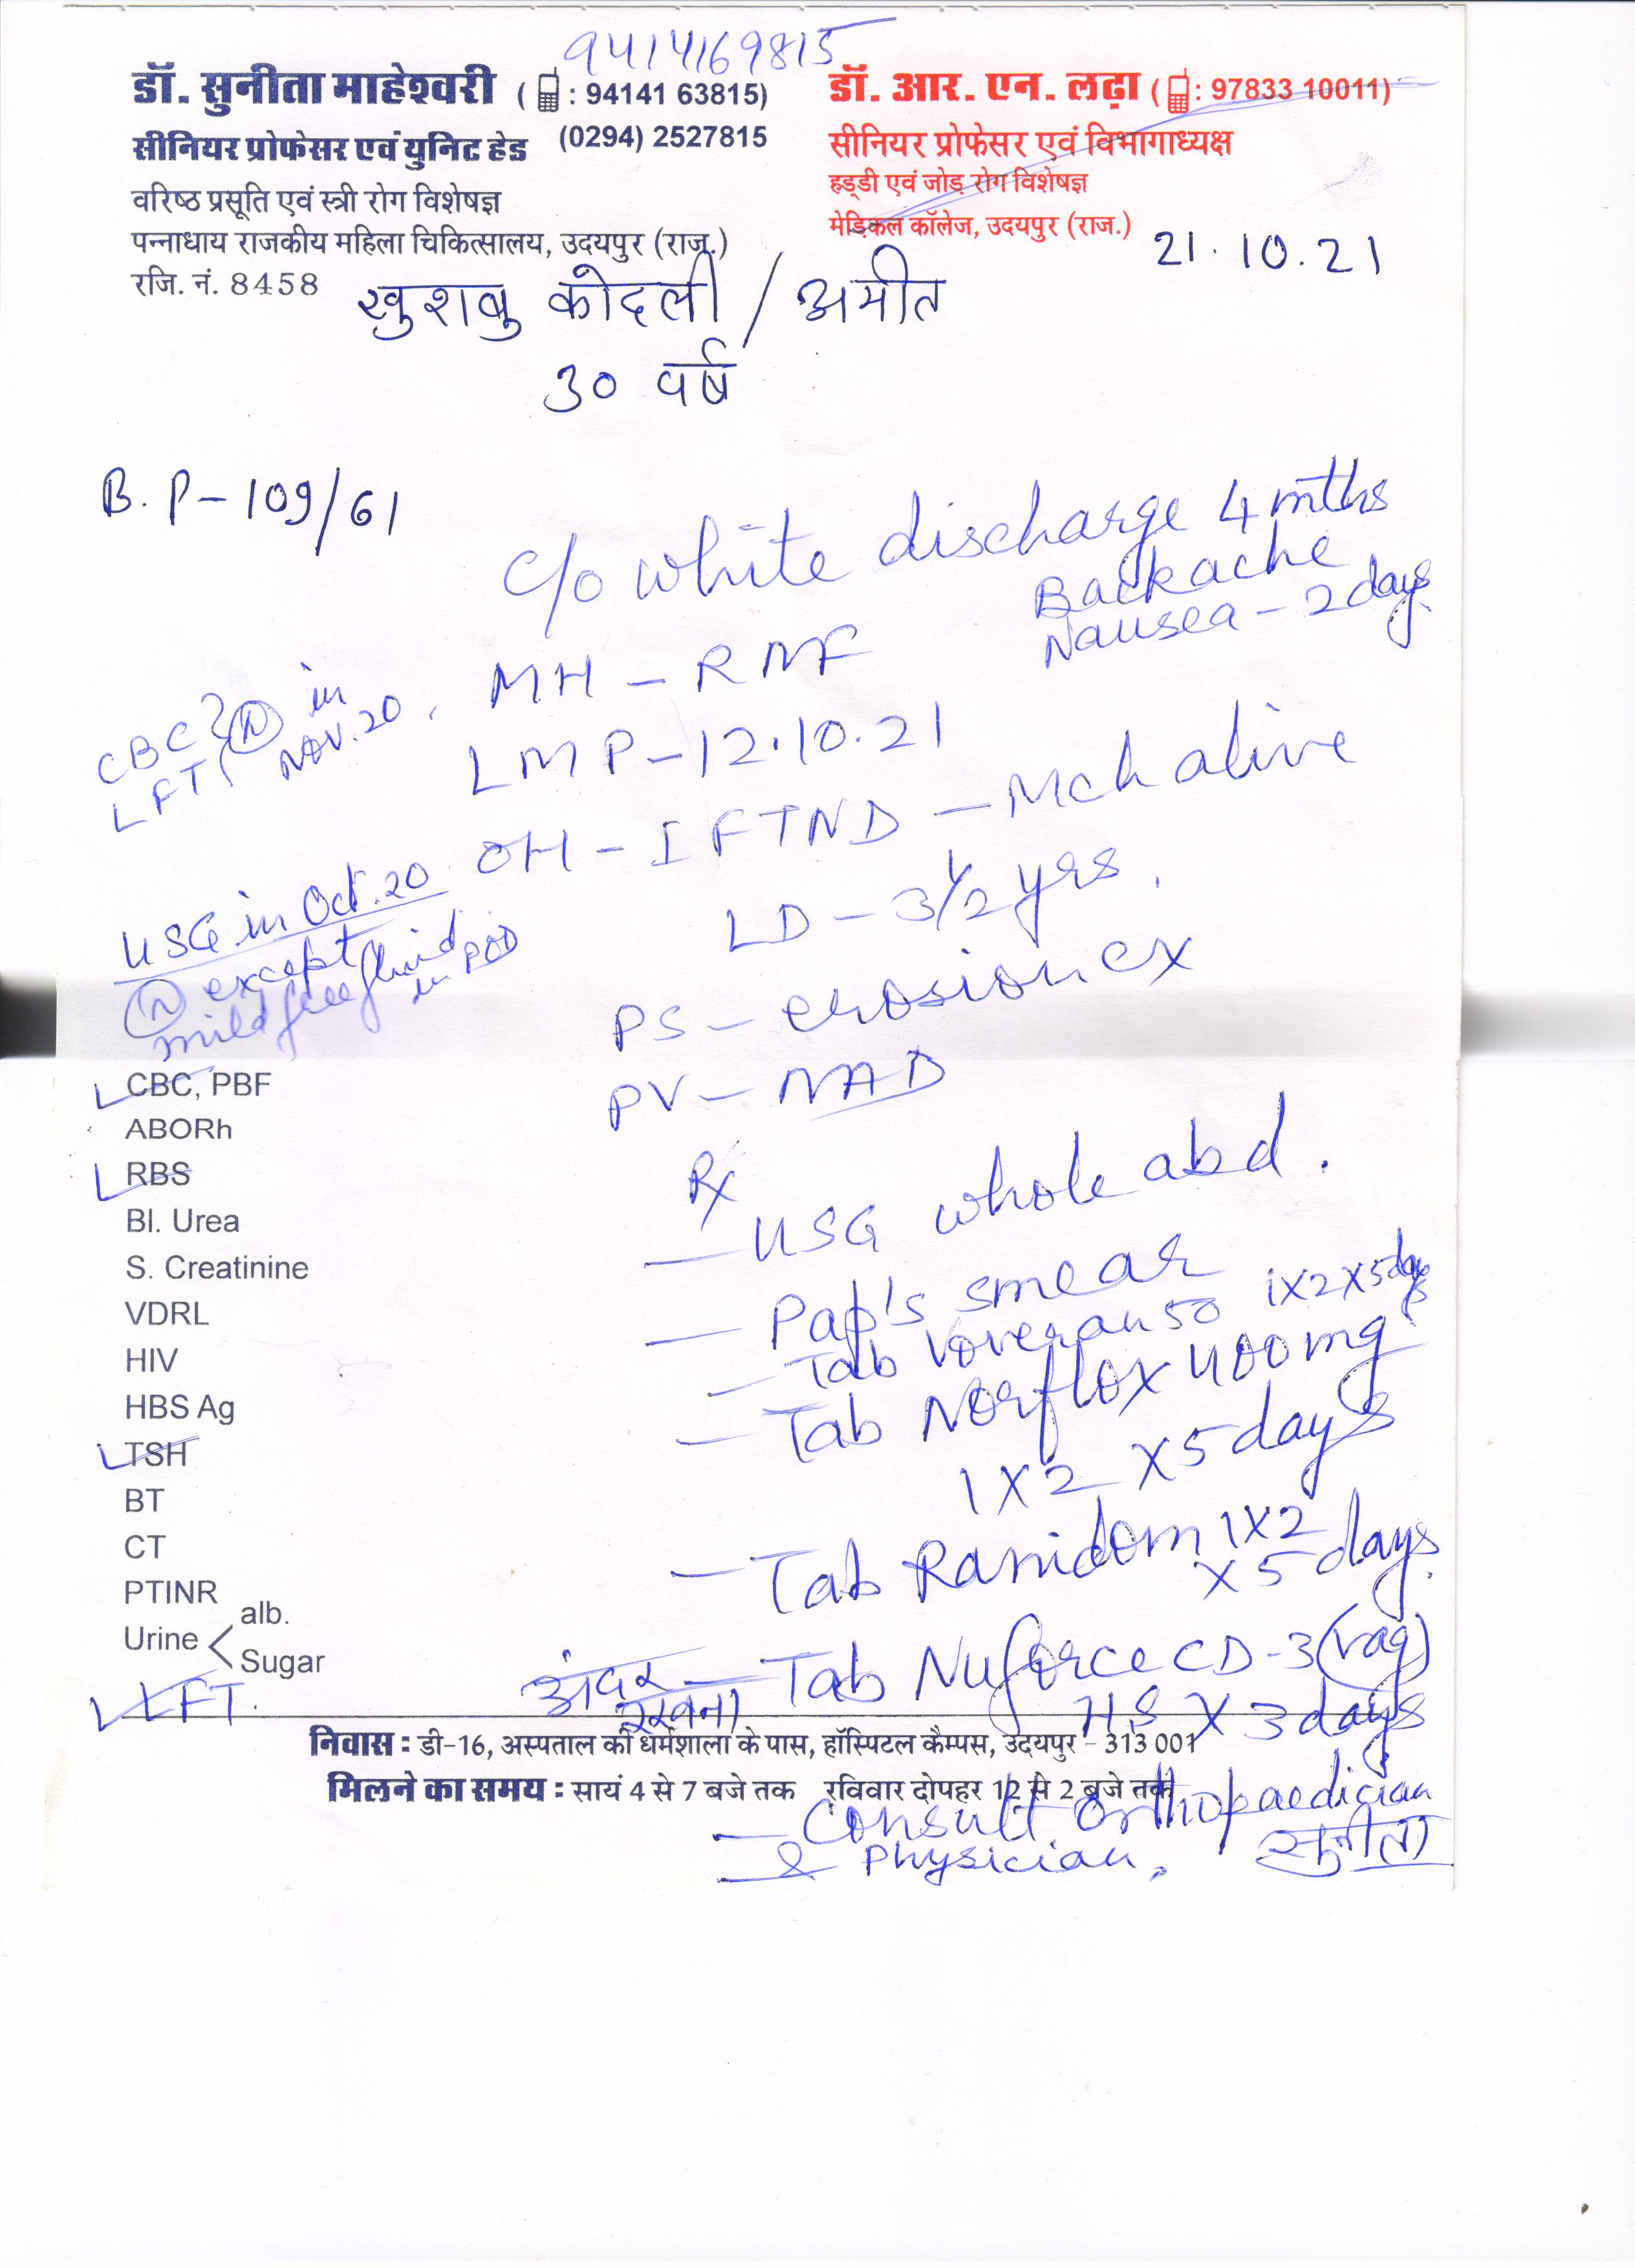 9414169815
डॉ. सुनीता माहेश्वरी ( : 94141 63815)
सीनियर प्रोफेसर एवं युनिट हेड (0294) 2527815
वरिष्ठ प्रसूति एवं स्त्री रोग विशेषज्ञ
पन्नाधाय राजकीय महिला चिकित्सालय, उदयपुर (राज.)
रजि. नं. 8458
डॉ. आर. एन. लढ़ा ( : 97833 10011)
सीनियर प्रोफेसर एवं विभागाध्यक्ष
हड्डी एवं जोड़ रोग विशेषज्ञ
मेडिकल कॉलेज, उदयपुर (राज.)
21.10.21
खुशबु कोदली / अमीत
30 वर्ष
B.P-109/61
c/o white discharge 4 mths
Backache
Nausea - 2 days
MH - RMF
LMP-12.10.21
OH - I FTND - Mch alive
LD - 3 1/2 yrs.
PS - erosion cx
PV - NAD
CBC? (N) in
LFT Nov.20
USG in Oct.20
(N) except
mild free fluid
in POD
CBC, PBF
ABORh
RBS
Bl. Urea
S. Creatinine
VDRL
HIV
HBS Ag
TSH
BT
CT
PTINR
Urine < alb.
Sugar
LFT.
Rx
- USG whole abd.
- Pap's smear
- Tab Voveran 50 1X2X5 days
- Tab Norflox 400mg
1X2 X5 days
- Tab Ranidom 1X2
X5 days.
अंदर रखना - Tab Nuforce CD-3 (vag)
HS X 3 days
निवास : डी-16, अस्पताल की धर्मशाला के पास, हॉस्पिटल कैम्पस, उदयपुर - 313 001
मिलने का समय : सायं 4 से 7 बजे तक रविवार दोपहर 12 से 2 बजे तक
- Consult Orthopaedician
& Physician. सुनीता